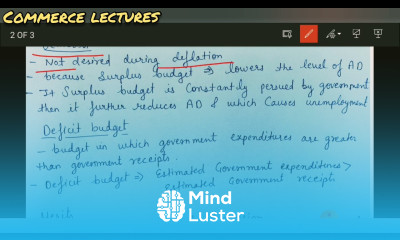 COMMERCE LECTURES
2 OF 3
- Not desired during deflation
- because Surplus budget ⇒ lowers the level of AD
- If Surplus budget is constantly persued by government
then it further reduces AD & which Causes unemployment
Deficit budget
- budget in which government expenditures are greater
than government receipts.
- Deficit budget ⇒ Estimated Government expenditures >
estimated Government receipts
Mind
Luster